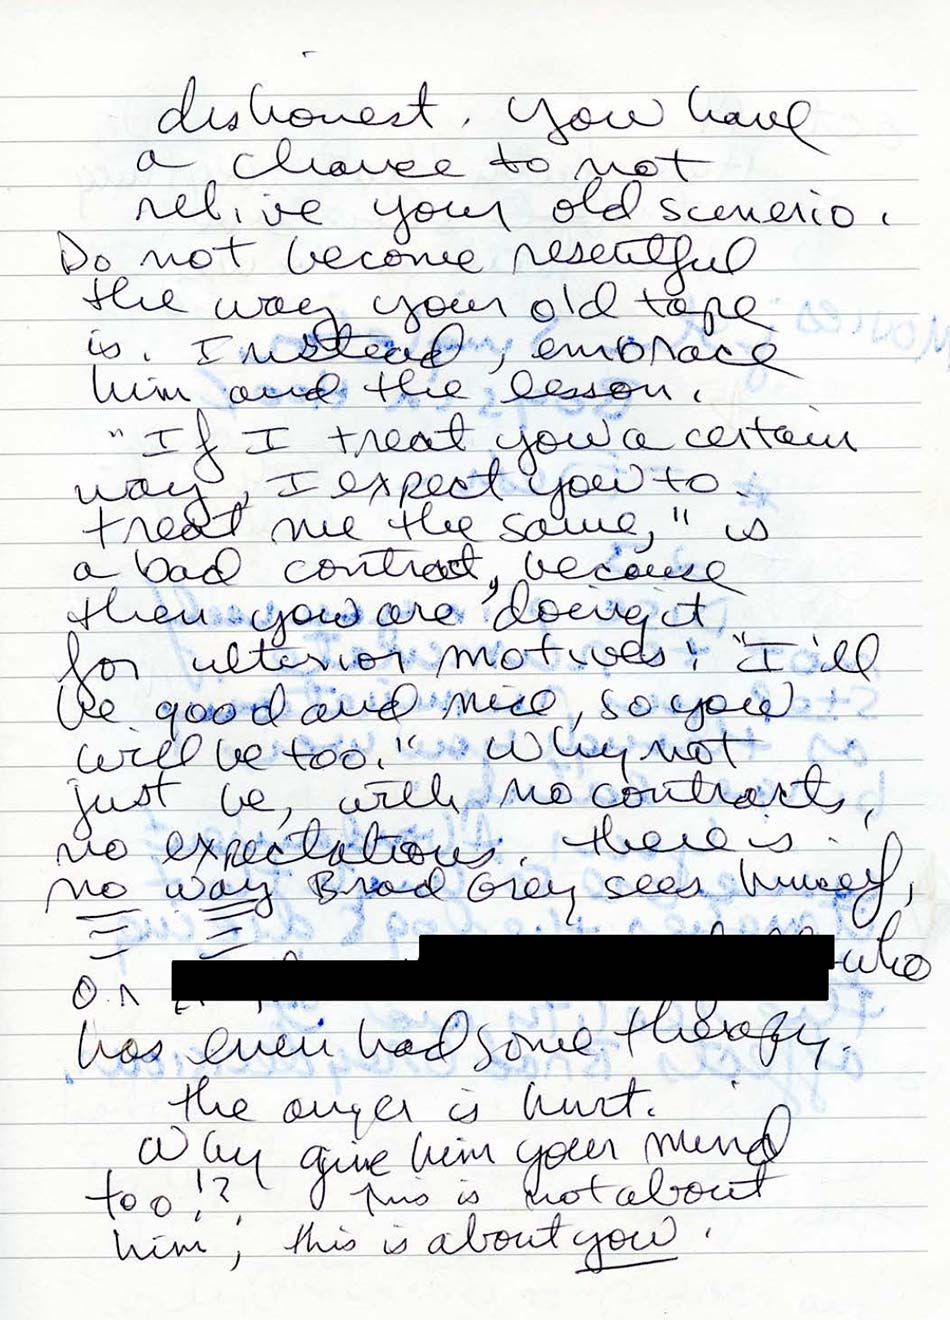 dishonest. You have
a chance to not
relive your old scenerio.
Do not become resentful
the way your old tape
is. Instead, embrace
him and the lesson.
"If I treat you a certain
way, I expect you to
treat me the same," is
a bad contract, because
then you are doing it
for ulterior motives: "I'll
be good and nice, so you
will be too." Why not
just be, with no contracts,
no expectations. There is
no way Brad Grey sees himself,
or who
has even had some therapy.
The anger is hurt.
Why give him your mind
too!? This is not about
him, this is about you.